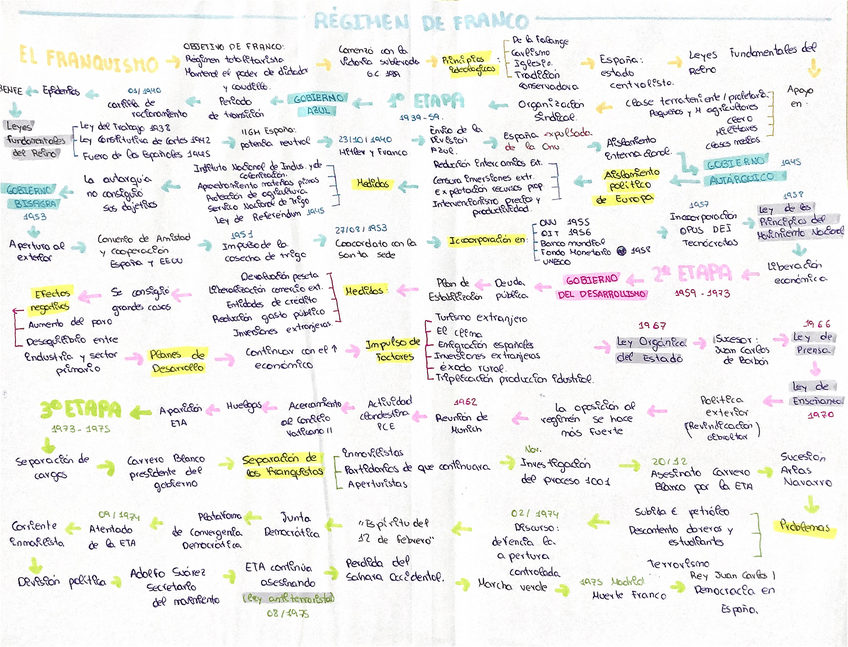 RÉGIMEN DE FRANCO
EL FRANQUISMO
OBJETIVO DE FRANCO:
Régimen totalitarista
Mantener el poder de dictador
y caudillo.
Comenzó con la
victoria sublevada
G.C 1939
Principios
ideológicos:
De la Falange
Carlismo
Iglesia
Tradición
conservadora
España:
estado
centralista.
Leyes Fundamentales del
Reino
Apoyo
en:
Clase terrateniente / proletaria.
Pequeños y M agricultores
Clero
Militares
Clases medias
Organización
Sindical.
1º ETAPA
1939-59.
GOBIERNO
AZUL
Periodo
de transición
01/1940
cartilla de
racionamiento
Epidemias
Leyes
Fundamentales
del Reino
Ley del Trabajo 1938
Ley constitutiva de Cortes 1942
Fuero de los Españoles 1945
IIGM España:
potencia neutral
23/10/1940
Hitler y Franco
Envío de la
División
Azul.
España expulsada
de la Onu
Aislamiento
Internacional.
GOBIERNO 1945
AUTÁRQUICO
Aislamiento
político
de Europa
Reducción Intercambios Ext.
Censura inversiones extr.
Explotación recursos prop
Intervencionismo precio y
productividad
Medidas
Instituto Nacional de Indus. y de
colonización.
Aprovechamiento materias primas
Protección de agricultura
Servicio Nacional de Trigo
Ley de Referéndum 1945
La autarquía
no consiguió
sus objetivos
GOBIERNO
BISAGRA
1953
Apertura al
exterior
Convenio de Amistad
y cooperación
España y EEUU
1951
Impulso de la
cosecha de trigo
27/08/1953
Concordato con la
santa sede
Incorporación en:
ONU 1955
OIT 1956
Banco mundial
Fondo Monetario 1958
UNESCO
1957
Incorporación
OPUS DEI
Tecnócratas
1958
Ley de los
Principios del
Movimiento Nacional
Liberación
económica
2º ETAPA
1959-1973
GOBIERNO
DEL DESARROLLISMO
Deuda
pública
Plan de
Estabilización
Medidas:
Devaluación peseta
Liberalización comercio ext.
Entidades de crédito
Reducción gasto público
Inversiones extranjeras
Se consiguió
grandes cosas
Efectos
negativos
Aumento del paro
Desequilibrio entre
industria y sector
primario
Planes de
Desarrollo
Continuar con el ↑
económico
Impulso de
Factores
Turismo extranjero
El clima
Emigración españoles
Inversiones extranjeras
éxodo rural.
Triplicación producción industrial.
1967
Ley Orgánica
del Estado
Sucesor:
Juan Carlos
de Borbón
1966
Ley de
Prensa.
Ley de
Enseñanza
1970
Política
exterior
(Reivindicación
Gibraltar)
La oposición al
régimen se hace
más fuerte
1962
Reunión de
Munich
Actividad
clandestina
PCE
Acercamiento
al Concilio
Vaticano II
Huelgas
Aparición
ETA
3º ETAPA
1973-1975
Separación de
cargos
Carrero Blanco
presidente del
gobierno
Separación de
los franquistas
Inmovilistas
Partidarios de que continuara
Aperturistas
Nov.
Investigación
del proceso 1001
20/12
Asesinato Carrero
Blanco por la ETA
Sucesión
Arias
Navarro
Problemas
Subida € petróleo
Descontento obreros y
estudiantes
Terrorismo
02/1974
Discurso:
defencia la
apertura
controlada
"Espíritu del
12 de febrero"
Junta
Democrática
Plataforma
de Convergencia
Democrática
09/1974
Atentado
de la ETA
Corriente
inmovilista
División política
Adolfo Suárez
Secretario
del movimiento
ETA continúa
asesinando
Ley antiterrorista
08/1975
Perdida del
Sahara Occidental.
Marcha verde
1975 Madrid
Muerte Franco
Rey Juan Carlos I
Democracia en
España.